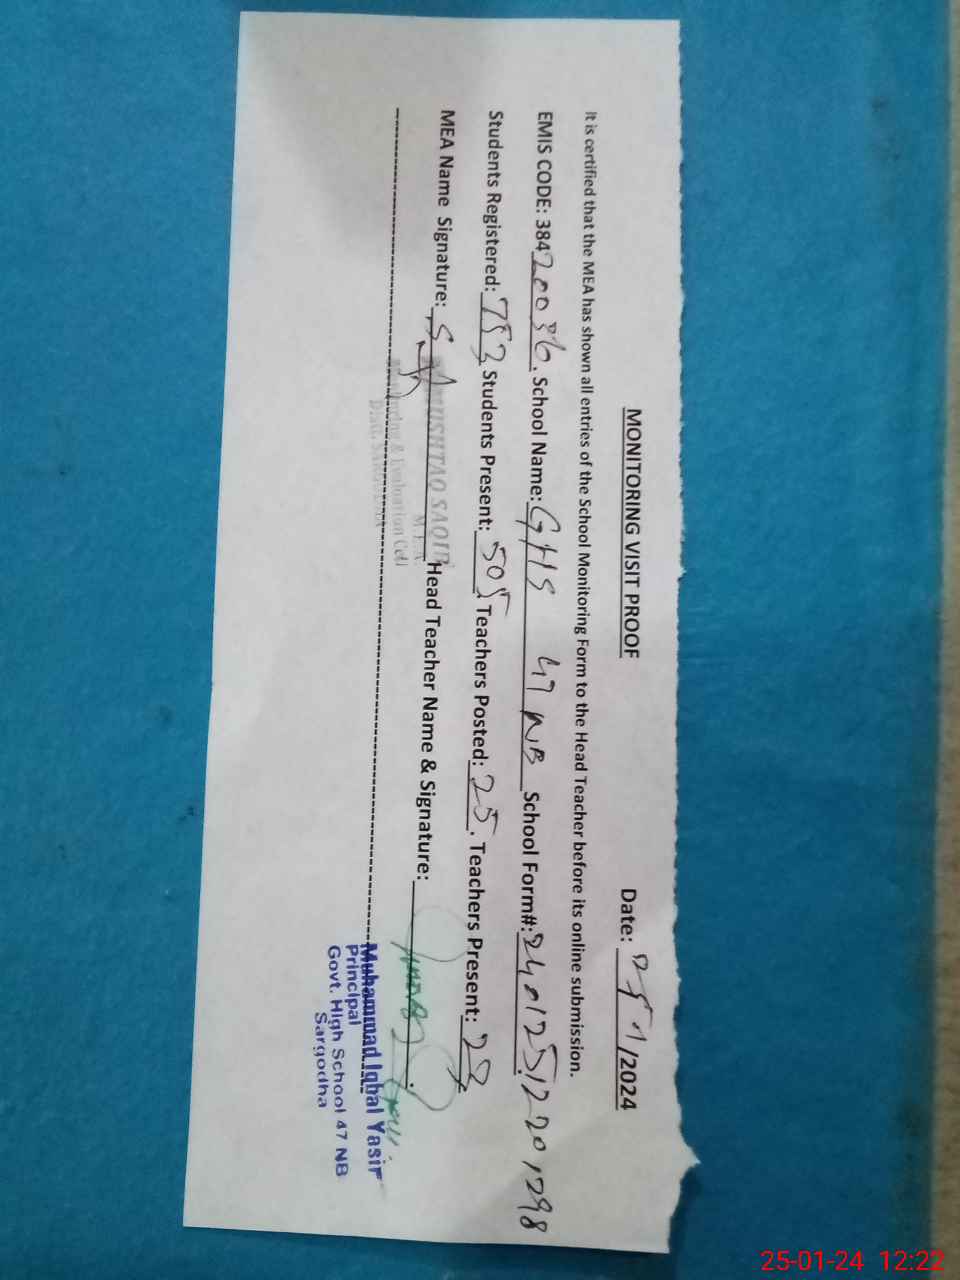 MONITORING VISIT PROOF Date: 25/1/2024
It is certified that the MEA has shown all entries of the School Monitoring Form to the Head Teacher before its online submission.
EMIS CODE: 38420036. School Name: GHS 47 NB School Form#: 24012512201298
Students Registered: 752 Students Present: 505 Teachers Posted: 25. Teachers Present:
MEA Name Signature: Head Teacher Name & Signature:
MUSHTAQ SAQIB
M.E.A
Monitoring & Evaluation Cell
Distt. SARGODHA
Muhammad Iqbal Yasir
Principal
Govt. High School 47 NB
Sargodha
25-01-24 12:22